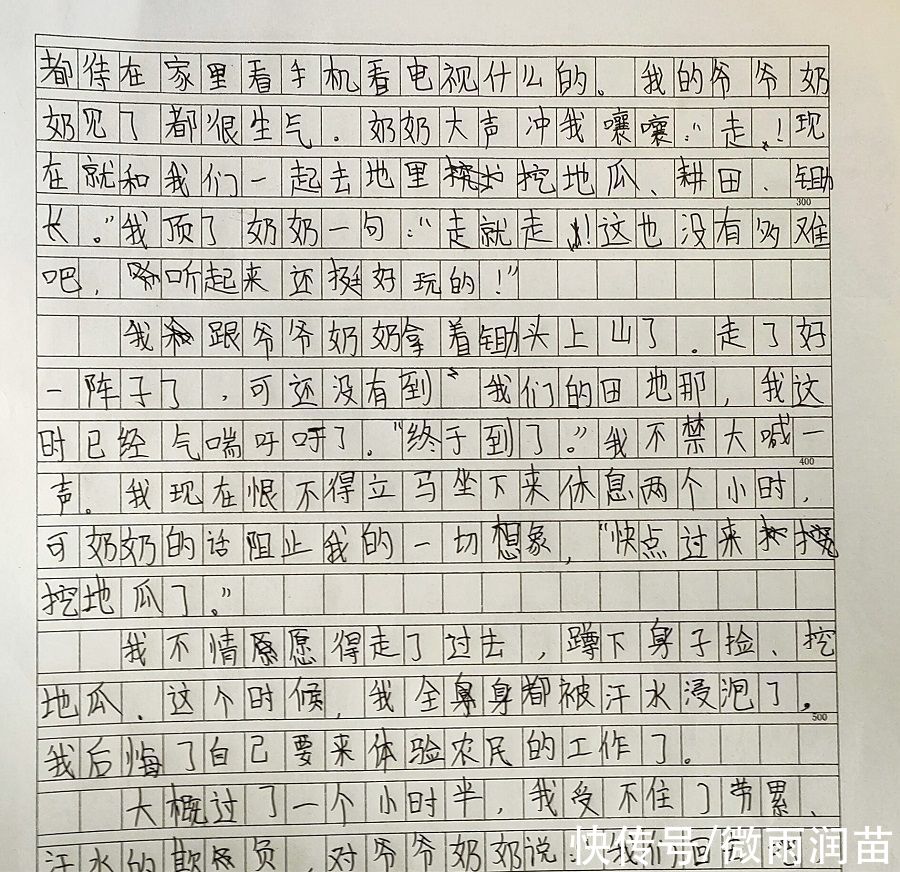 都待在家里看手机看电视什么的。我的爷爷奶
奶见了都很生气。奶奶大声冲我嚷嚷:“走!现
在就和我们一起去地里挖地瓜、耕田、锄
300
长。”我顶了奶奶一句:“走就走!这也没有多难
吧,听起来还挺好玩的!”
我跟爷爷奶奶拿着锄头上山了。走了好
一阵子了,可还没有到我们的田地那,我这
时已经气喘吁吁了。“终于到了。”我不禁大喊一
400
声。我现在恨不得立马坐下来休息两个小时,
可奶奶的话阻止我的一切想象,“快点过来
挖地瓜了。”
我不情愿得走了过去,蹲下身子捡、挖
地瓜、这个时候,我全身都被汗水浸泡了,
500
我后悔了自己要来体验农民的工作了。
大概过了一个小时半,我受不住了劳累、
汗水的欺负,对爷爷奶奶说:我们回
快传号/微雨润苗